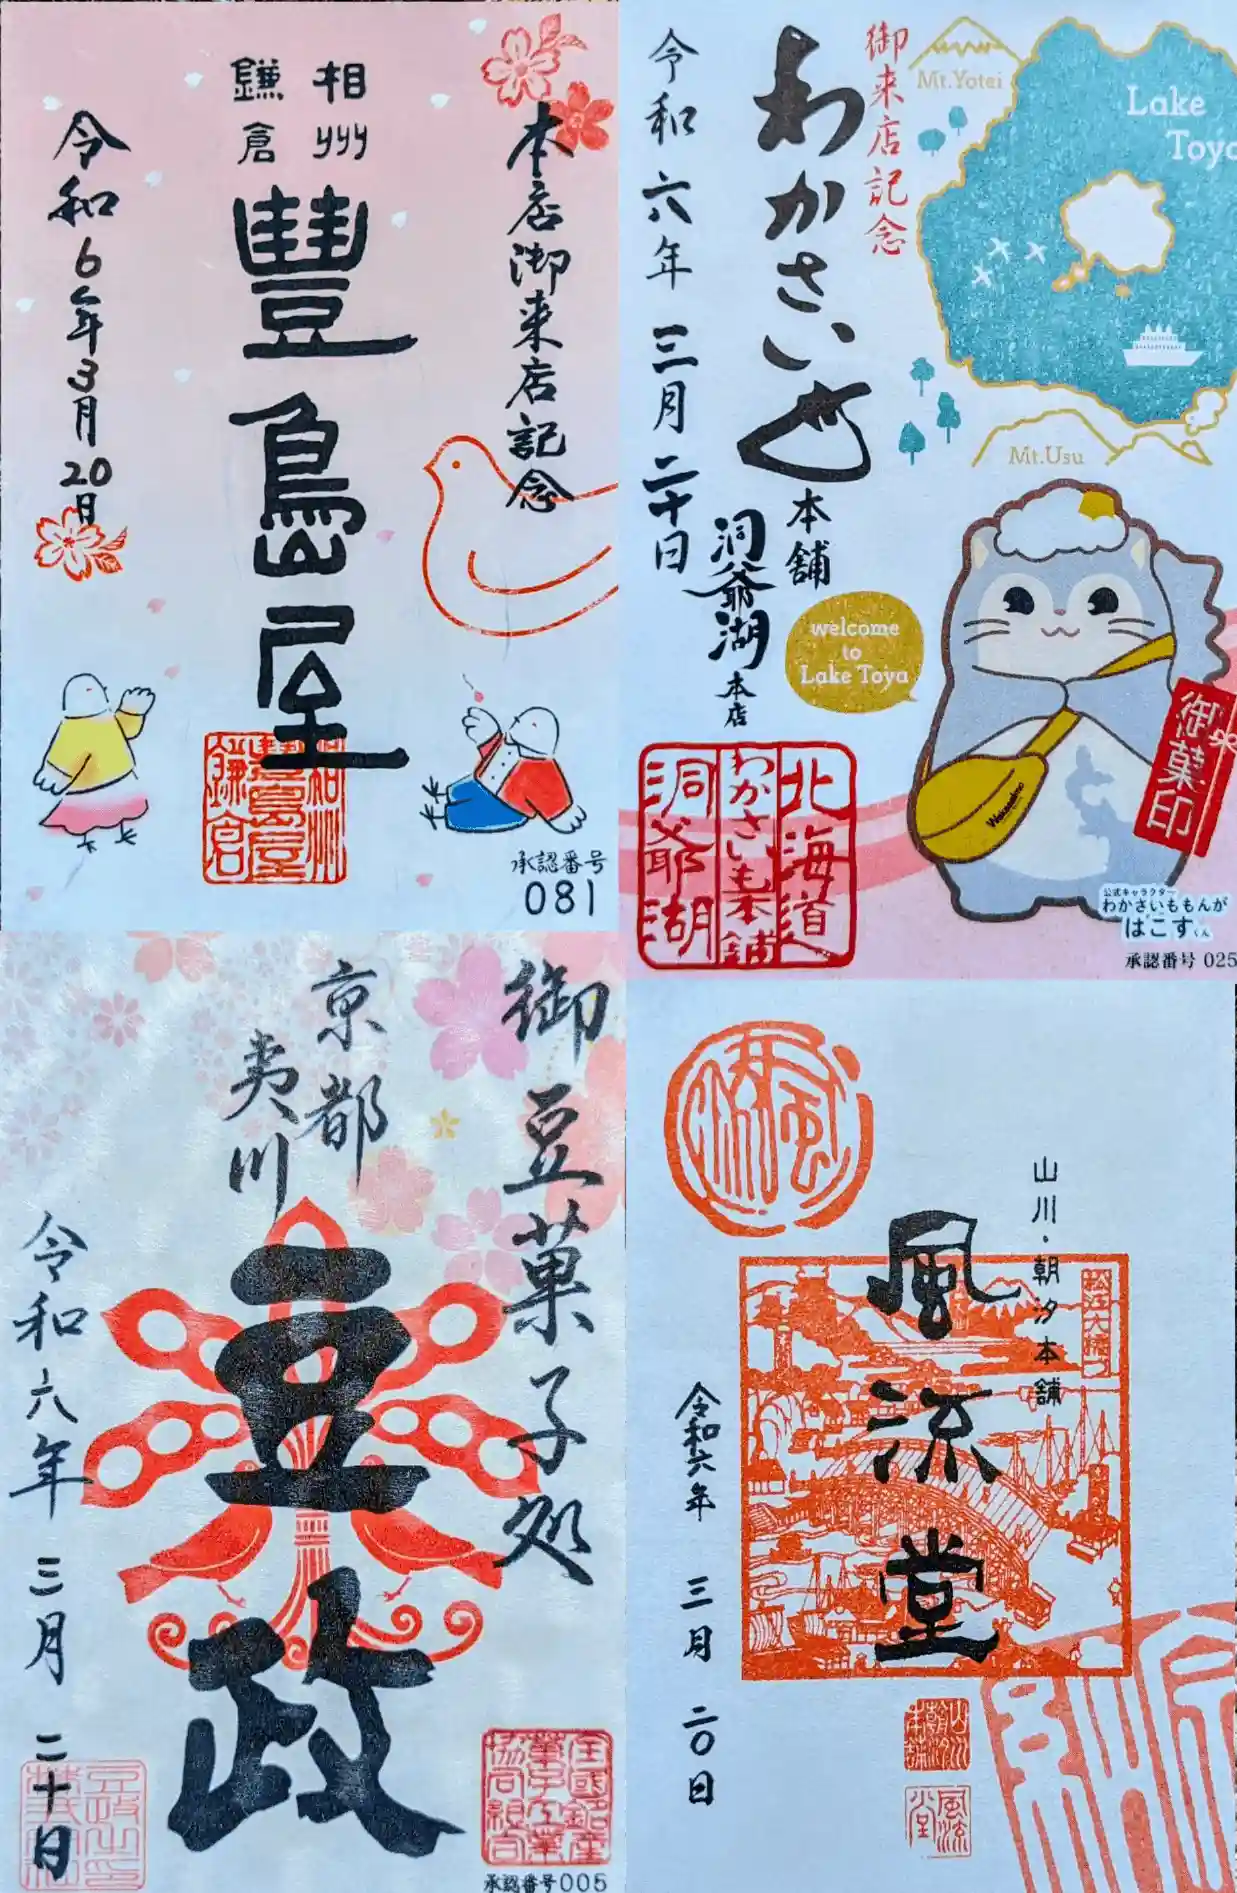 本店御来店記念
相州
鎌倉
豐島屋
令和6年3月20日
相州
豐島屋
鎌倉
承認番号
081
御来店記念
わかさいも
本舗
洞爺湖
本店
令和六年三月二十日
Mt.Yotei
Lake
Toya
Mt.Usu
welcome
to
Lake Toya
御菓印
北海道
わかさいも本舗
洞爺湖
公式キャラクター
わかさいももんが
はこすくん
承認番号 025
御豆菓子処
京都
夷川
豆政
令和六年 三月 二十日
全國銘産
菓子工業
協同組合
承認番号005
山川・朝汐本舗
風流堂
松江大橋
令和六年 三月 二〇日
山川
朝汐
本舗
風流
堂